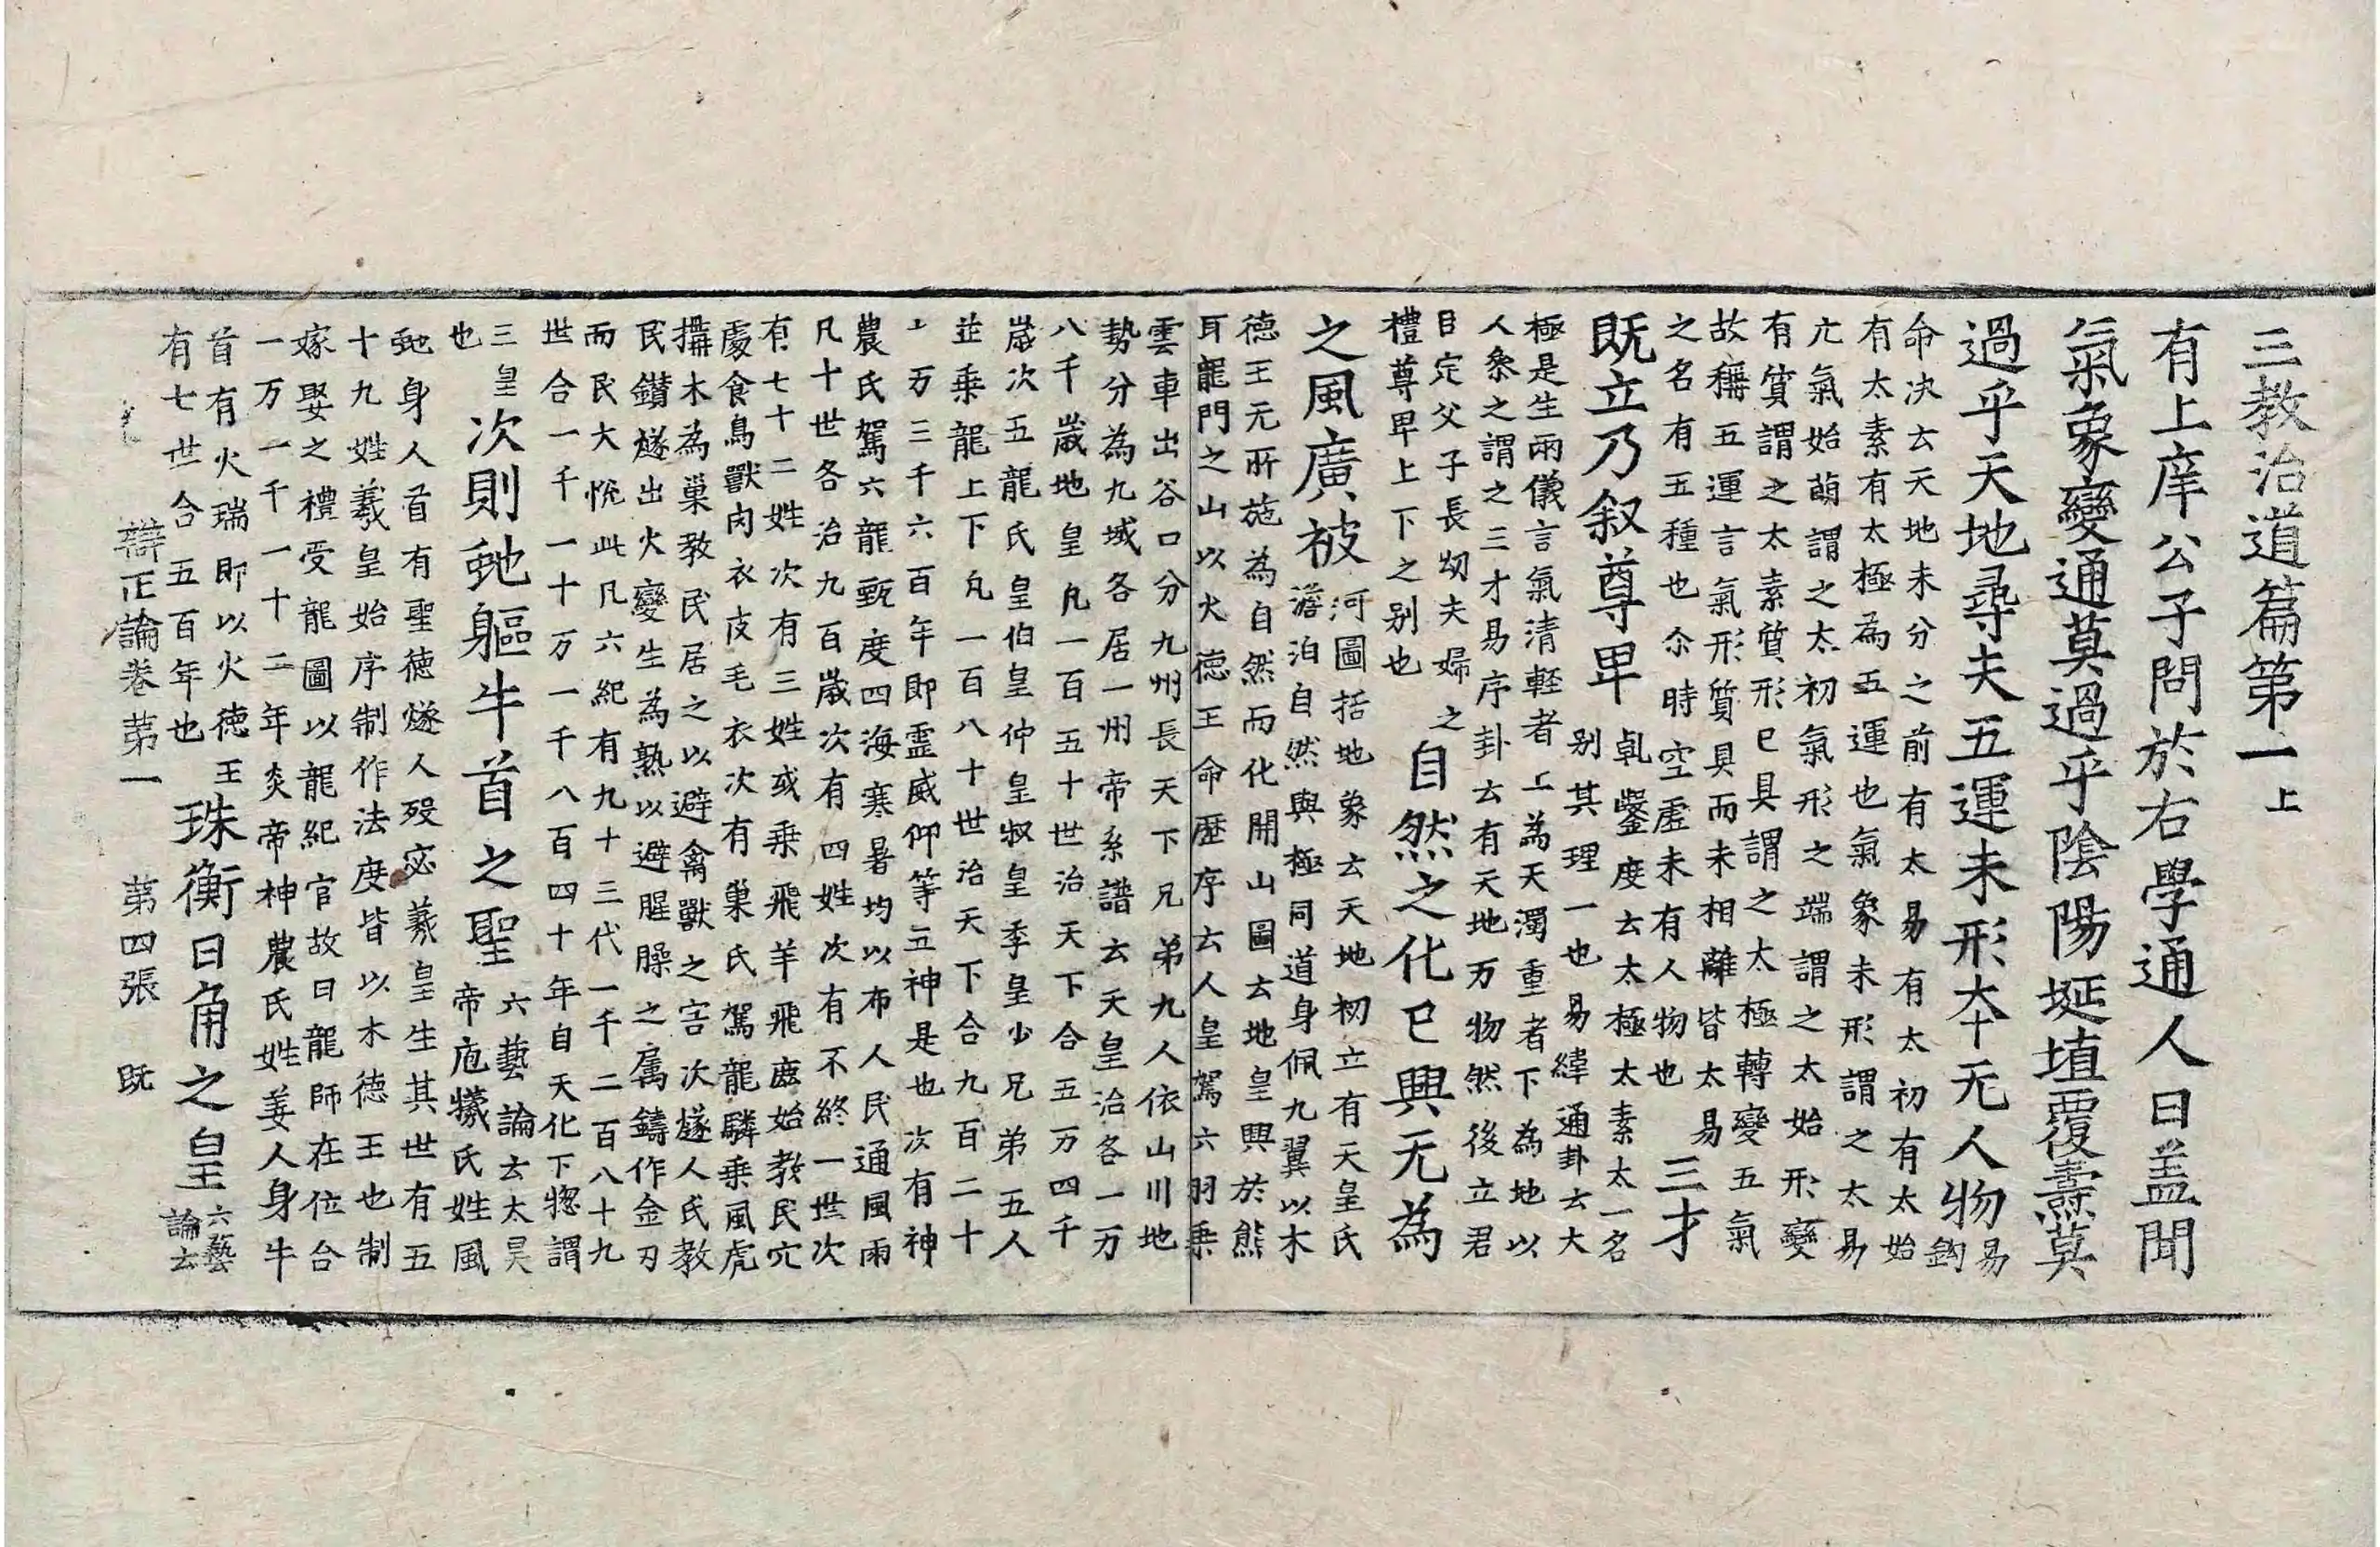 三教治道篇第一上
有上庠公子問於右學通人曰盖聞
氣象變通莫過乎陰陽埏埴覆燾莫
過乎天地尋夫五運未形夲无人物易鈎
命决云天地未分之前有太易有太初有太始
有太素有太極為五運也氣象未形謂之太易
元氣始萌謂之太初氣形之端謂之太始形變
有質謂之太素質形已具謂之太極轉變五氣
故稱五運言氣形質具而未相離皆太易
之名有五種也尒時空虛未有人物也三才
既立乃叙尊卑乹鑿度云太極太素太一名
别其理一也易緯通卦云大
極是生兩儀言氣清輕者上為天濁重者下為地以
人叅之謂之三才易序卦云有天地万物然後立君
臣定父子長㓜夫婦之
禮尊卑上下之别也自然之化已興无為
之風廣被河圖括地象云天地初立有天皇氏
澹泊自然與極同道身佩九翼以木
德王元所施為自然而化開山圖云地皇興於熊
耳龍門之山以火德王命歷序云人皇駕六羽乗
雲車出谷口分九州長天下兄弟九人依山川地
勢分為九域各居一州帝系譜云天皇治各一万
八千歲地皇凡一百五十世治天下合五万四千
歲次五龍氏皇伯皇仲皇叔皇季皇少兄弟五人
並乗龍上下凡一百八十世治天下合九百二十
二万三千六百年即霊威仰等五神是也次有神
農氏駕六龍甄度四海寒暑均以布人民通風雨
凡十世各治九百歲次有四姓次有不終一世次
有七十二姓次有三姓或乗飛羊飛鹿始教民穴
處食鳥獸肉衣皮毛衣次有巢氏駕龍麟乗風虎
搆木為巢教民居之以避禽獸之害次燧人氏教
民鑽燧出火變生為熟以避腥臊之属鑄作金刃
而民大悅此凡六紀有九十三代一千二百八十九
世合一千一十万一千八百四十年自天化下揔謂
三皇
也次則虵軀牛首之聖六藝論云太昊
帝庖犠氏姓風
虵身人首有聖德燧人殁宓羲皇生其世有五
十九姓羲皇始序制作法度皆以木德王也制
嫁娶之禮受龍圖以龍紀官故曰龍師在位合
一万一千一十二年炎帝神農氏姓姜人身牛
首有火瑞即以火德王
有七世合五百年也珠衡日角之皇六藝
論云
辯正論卷第一 第四張 既